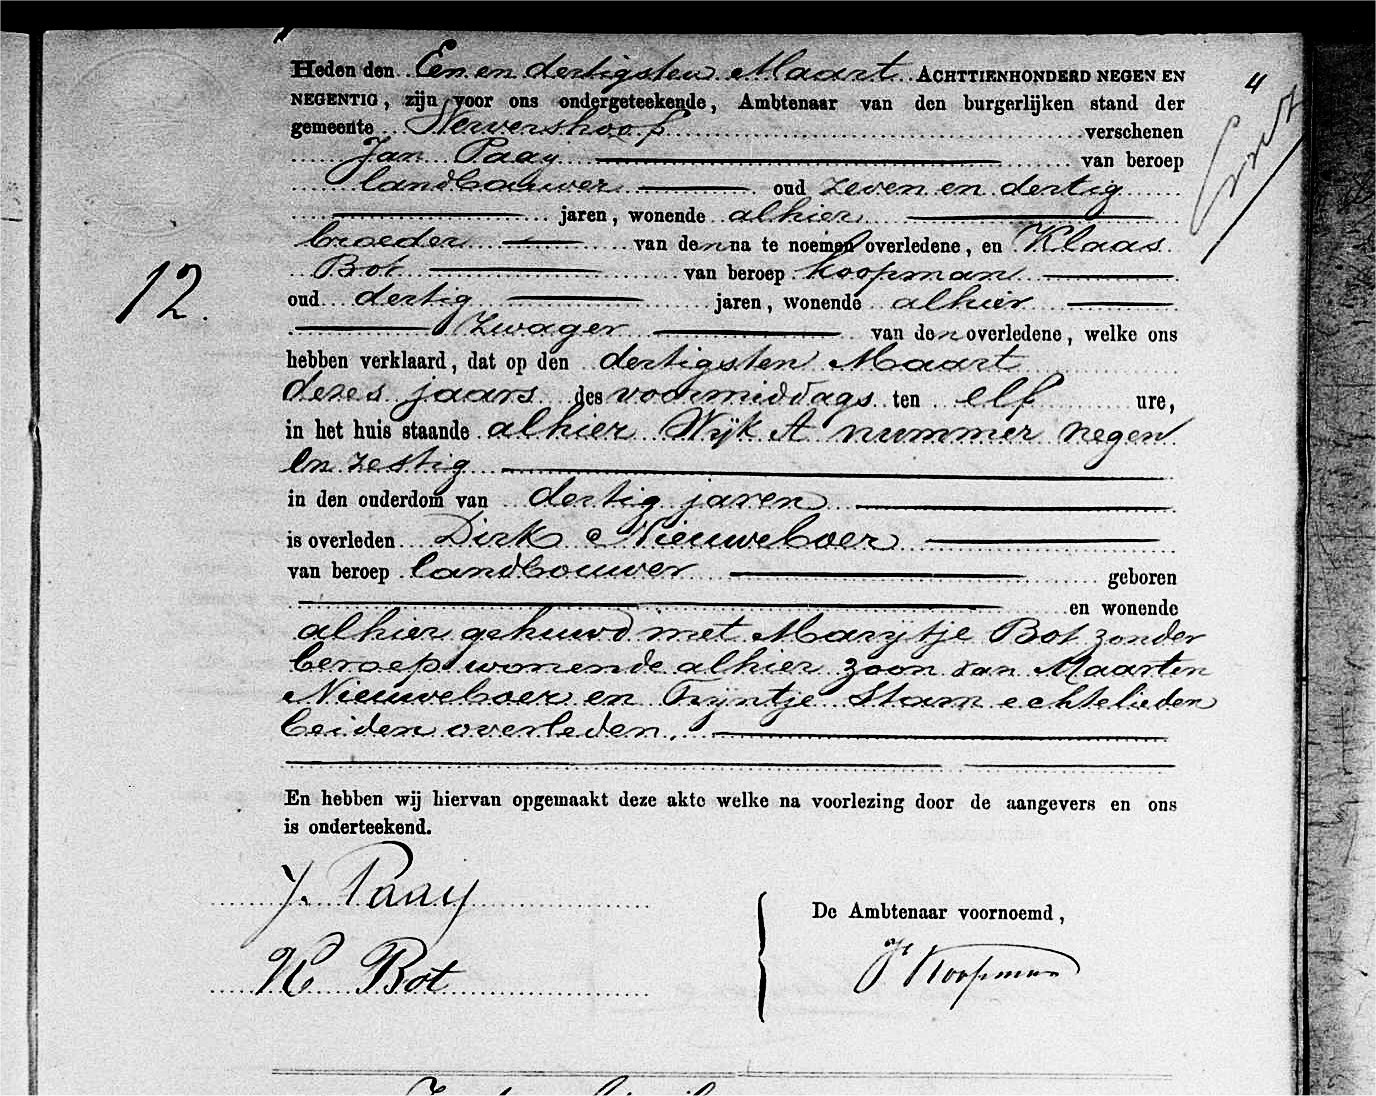 4
Heden den Een en dertigsten Maart ACHTTIENHONDERD NEGEN EN
NEGENTIG, zijn voor ons ondergeteekende, Ambtenaar van den burgerlijken stand der
gemeente Wervershoof verschenen
Jan Paay van beroep
landbouwer oud zeven en dertig
jaren, wonende alhier
broeder van den na te noemen overledene, en Klaas
12.
Bot van beroep koopman
oud dertig jaren, wonende alhier
Zwager van den overledene, welke ons
hebben verklaard, dat op den dertigsten Maart
dezes jaars des voormiddags ten elf ure,
in het huis staande alhier Wijk A nummer negen
en zestig
in den ouderdom van dertig jaren
is overleden Dirk Nieuweboer
van beroep landbouwer geboren
en wonende
alhier gehuwd met Marijtje Bot zonder
beroep wonende alhier zoon van Maarten
Nieuweboer en Trijntje Stam echtelieden
beiden overleden.
En hebben wij hiervan opgemaakt deze akte welke na voorlezing door de aangevers en ons
is onderteekend.
J. Paay
De Ambtenaar voornoemd,
K Bot
J Koopman